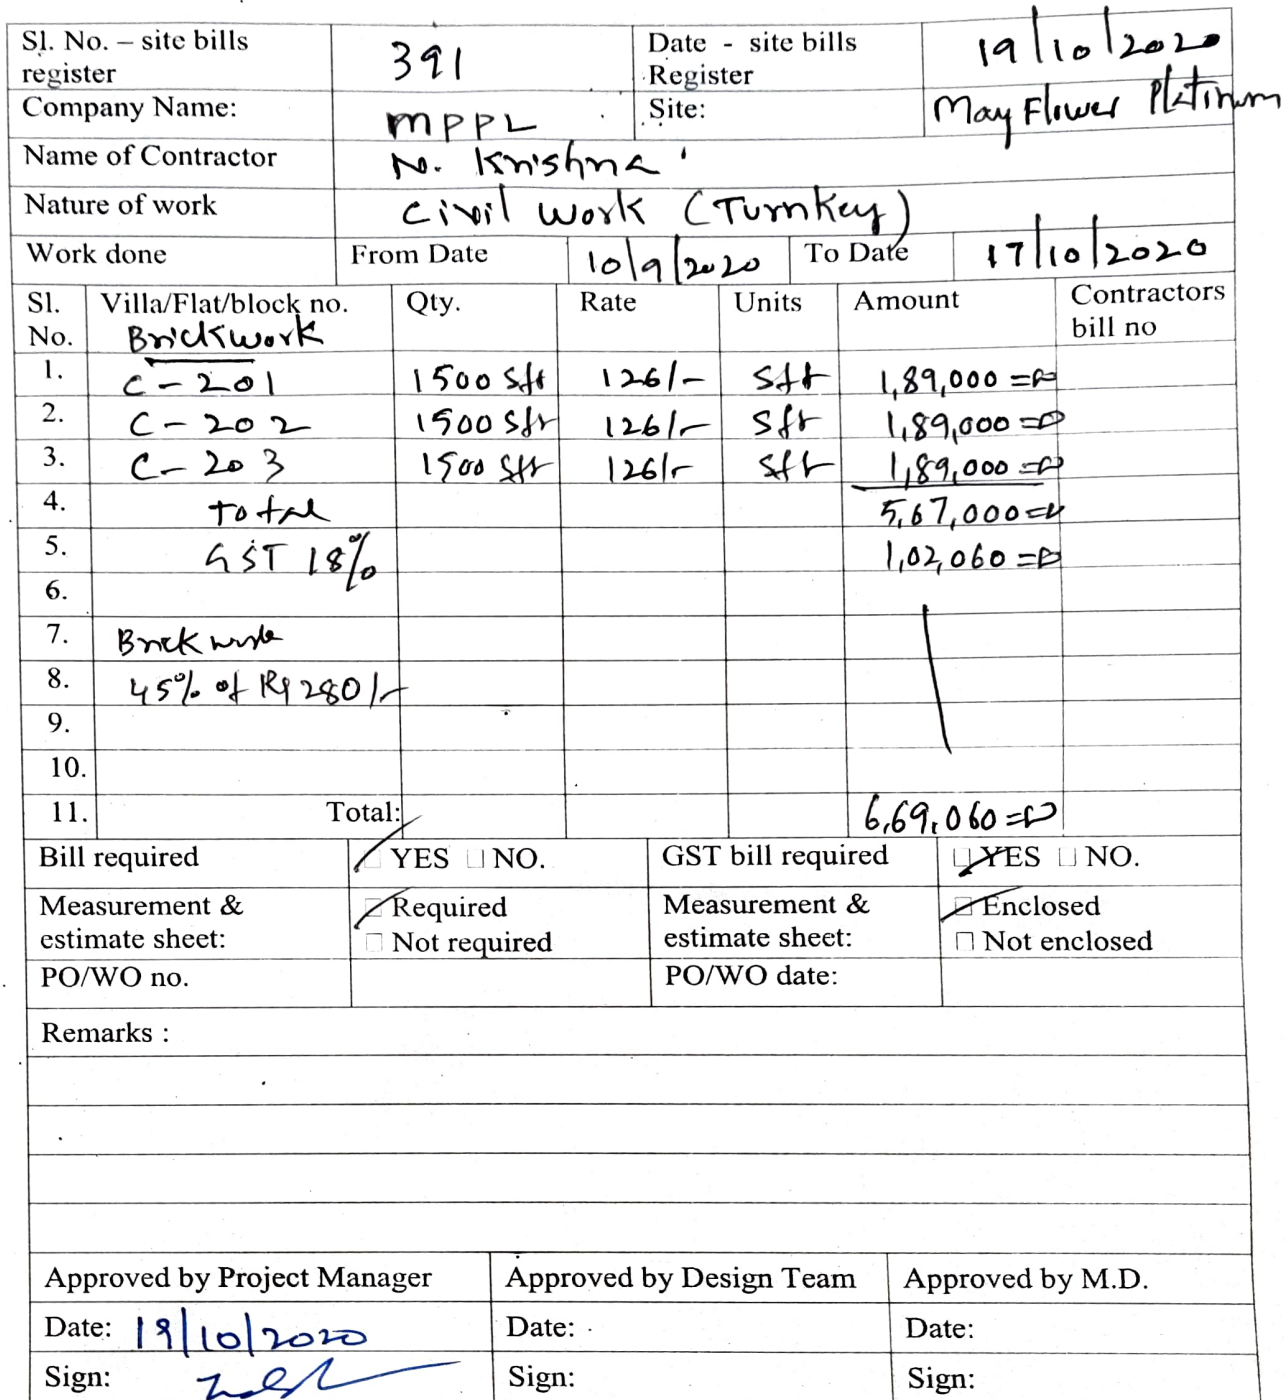 Sl. No. – site bills register 391 Date - site bills Register 19/10/2020
Company Name: MPPL Site: May Flower Platinum
Name of Contractor N. Krishna
Nature of work Civil Work (Turnkey)
Work done From Date 10/9/2020 To Date 17/10/2020
Sl. No. Villa/Flat/block no. Qty. Rate Units Amount Contractors bill no
Brickwork
1. C-201 1500 Sft 126/- Sft 1,89,000=00
2. C-202 1500 Sft 126/- Sft 1,89,000=00
3. C-203 1500 Sft 126/- Sft 1,89,000=00
4. Total 5,67,000=00
5. GST 18% 1,02,060=00
6.
7. Brick work
8. 45% of Rs 280/-
9.
10.
11. Total: 6,69,060=00
Bill required YES NO. GST bill required YES NO.
Measurement & estimate sheet: Required Not required Measurement & estimate sheet: Enclosed Not enclosed
PO/WO no. PO/WO date:
Remarks :
Approved by Project Manager Approved by Design Team Approved by M.D.
Date: 19/10/2020 Date: Date:
Sign: Sign: Sign: